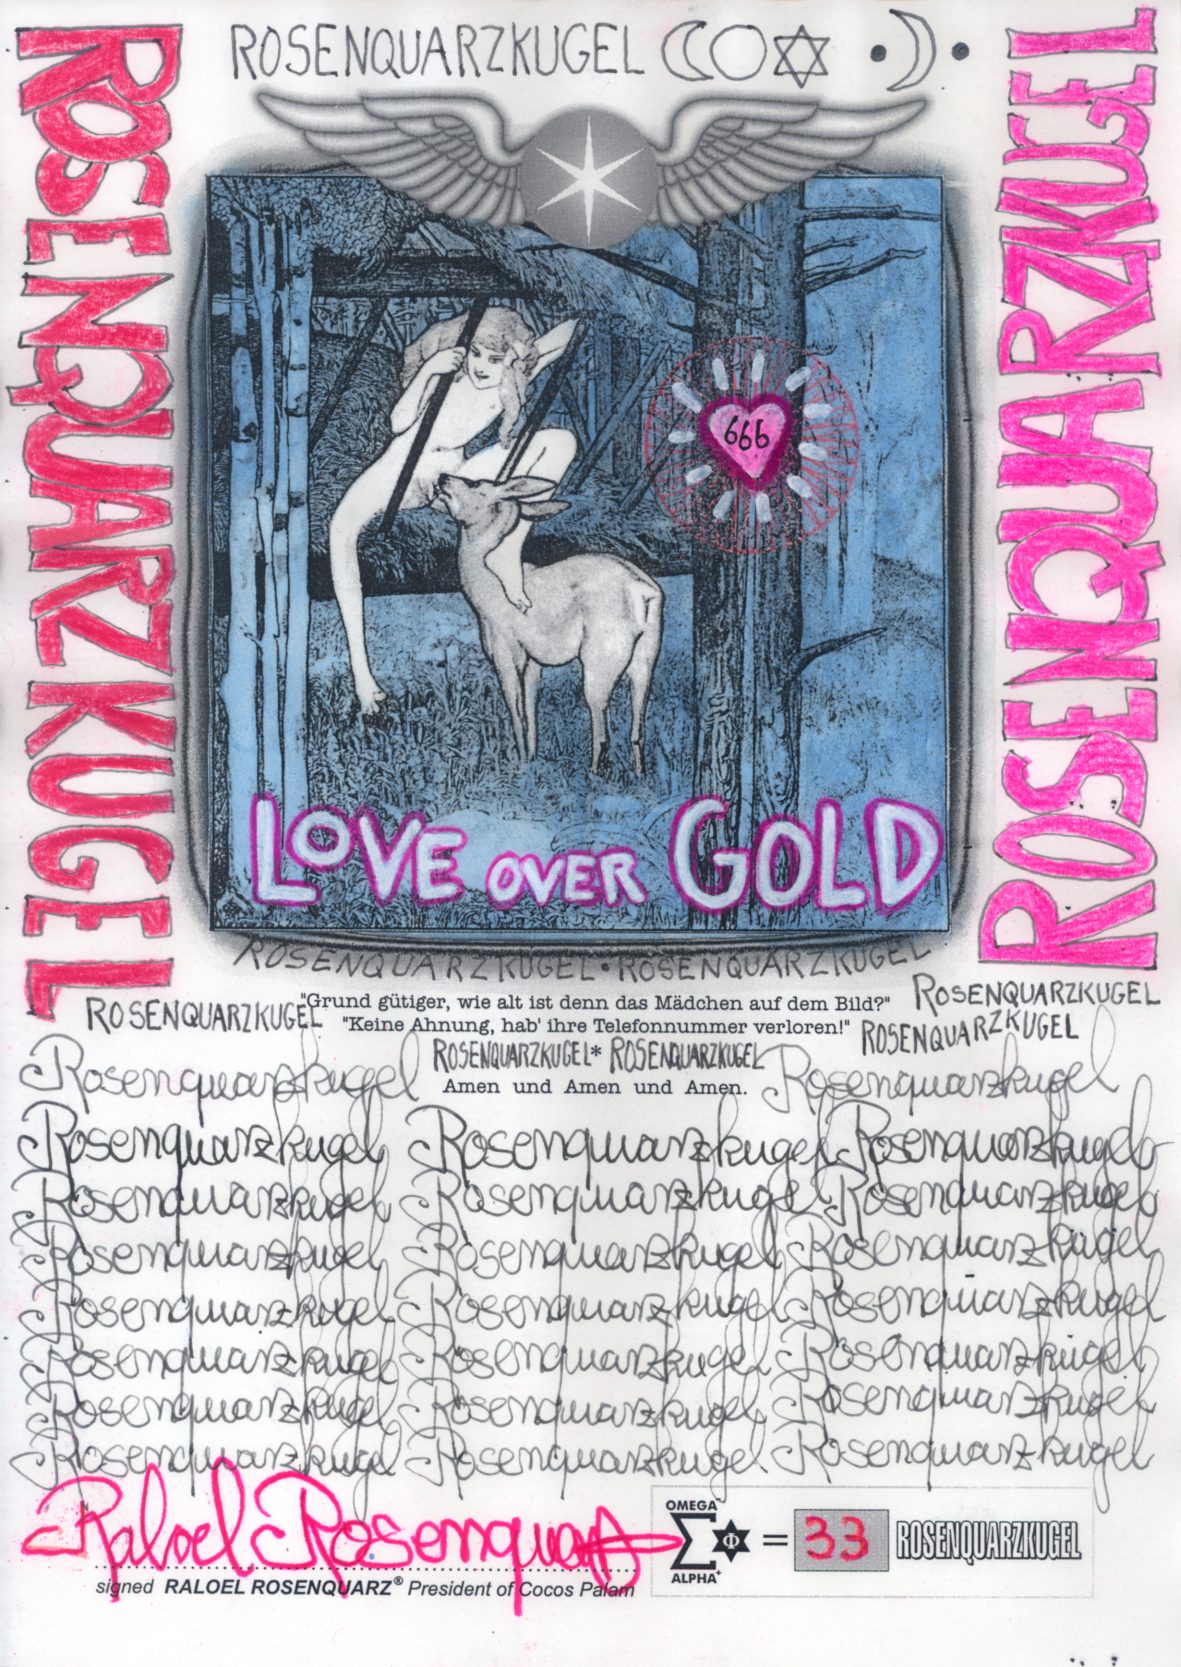 ROSENQUARZKUGEL
ROSENQUARZKUGEL
ROSENQUARZKUGEL
666
LOVE OVER GOLD
ROSENQUARZKUGEL • ROSENQUARZKUGEL
ROSENQUARZKUGEL
"Grund gütiger, wie alt ist denn das Mädchen auf dem Bild?"
ROSENQUARZKUGEL
"Keine Ahnung, hab' ihre Telefonnummer verloren!"
ROSENQUARZKUGEL
ROSENQUARZKUGEL* ROSENQUARZKUGEL
Rosenquarzkugel
Amen und Amen und Amen.
Rosenquarzkugel
Rosenquarzkugel Rosenquarzkugel Rosenquarzkugel
Rosenquarzkugel Rosenquarzkugel Rosenquarzkugel
Rosenquarzkugel Rosenquarzkugel Rosenquarzkugel
Rosenquarzkugel Rosenquarzkugel Rosenquarzkugel
Rosenquarzkugel Rosenquarzkugel Rosenquarzkugel
Rosenquarzkugel Rosenquarzkugel Rosenquarzkugel
Rosenquarzkugel Rosenquarzkugel Rosenquarzkugel
Raloel Rosenquarz
signed RALOEL ROSENQUARZ® President of Cocos Palam
OMEGA
Σ Φ = 33 ROSENQUARZKUGEL
ALPHA+